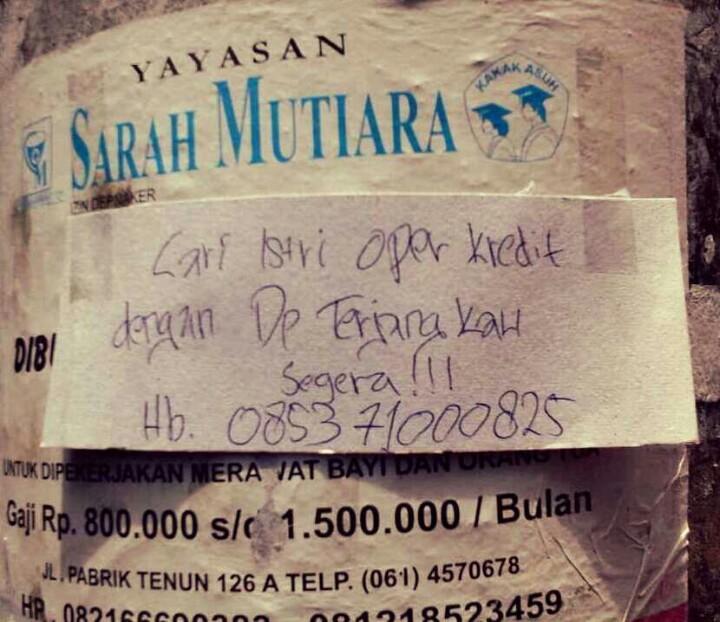 YAYASAN
SARAH MUTIARA
KAKAK ASUH
IZIN DEPNAKER
Cari Istri Oper kredit
dengan Dp Terjangkau
Segera!!!
Hb. 085371000825
DIBI
UNTUK DIPEKERJAKAN MERA JAT BAYI DAN ORANG
Gaji Rp. 800.000 s/d 1.500.000 / Bulan
JL. PABRIK TENUN 126 A TELP. (061) 4570678
HP. 081218523459